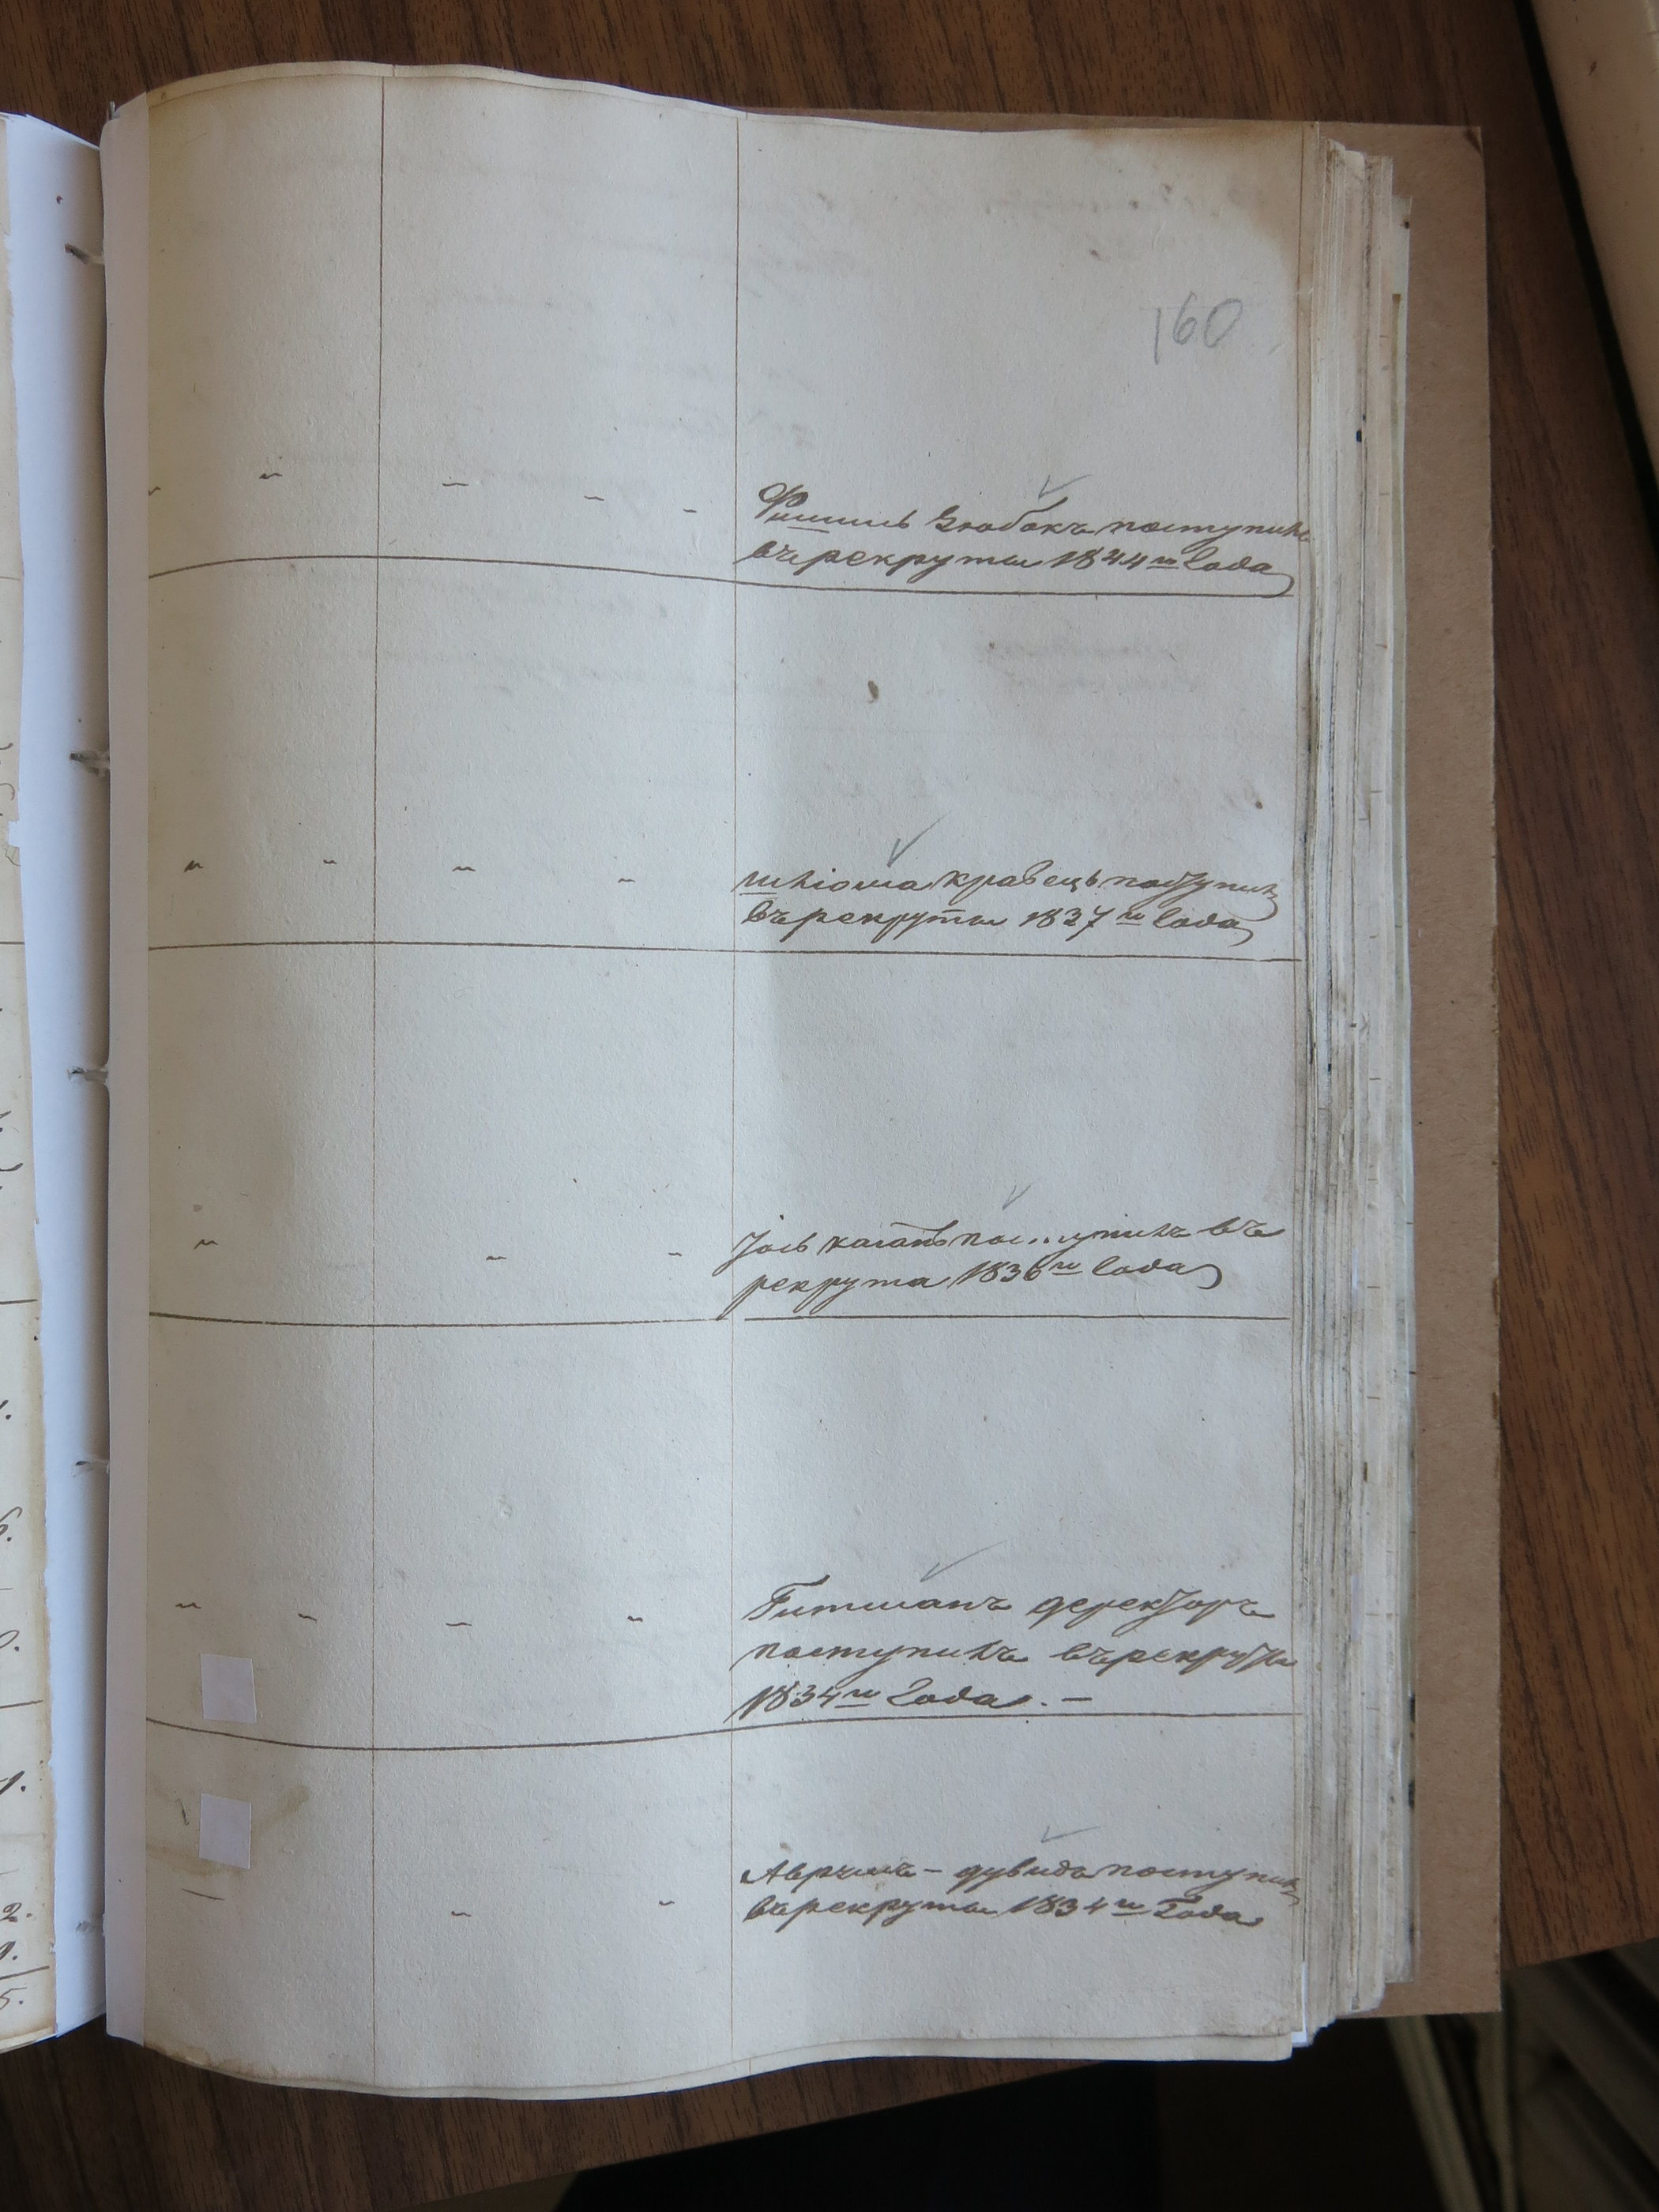 160
Фишель Зюбакъ поступилъ
въ рекруты 1844го года
шліома кравецъ поступилъ
въ рекруты 1837го года
Іось каганъ пос..упилъ въ
рекрута 1836го года
Гитманъ деректоръ
поступилъ въ рекруты
1834го года. —
Аврумъ - дувидъ поступилъ
въ рекруты 1834го Года